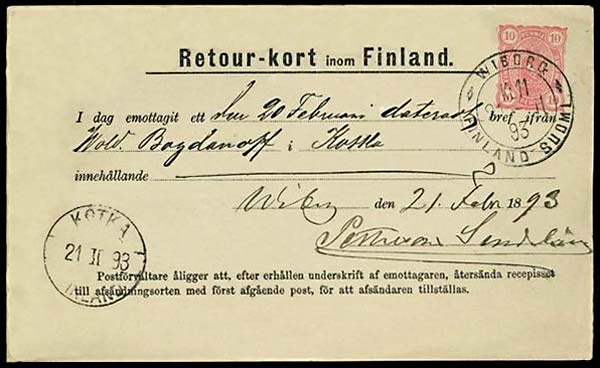 PENNIÄ
10 10
Retour-kort inom Finland.
WIBORG
11
II
93
FINLAND SUOMI
I dag emottagit ett den 20 Februari dateradt bref ifrån
Wold. Bogdanoff i Kotka
innehållande
Wiborg den 21 Febr 1893
KOTKA
21 II 93
FINLAND
Postförvaltare åligger att, efter erhållen underskrift af emottagaren, återsända recepisset
till afsändningsorten med först afgående post, för att afsändaren tillställas.